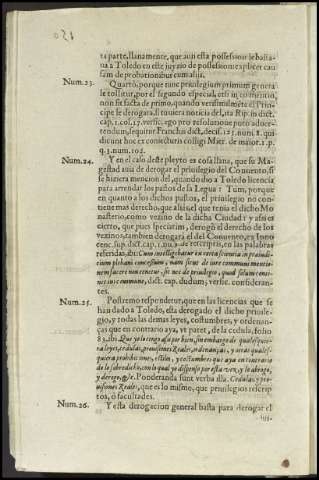 ta parte, llanamente, que aun esta possession le basta-
ua a Toledo en este juyzio de possession explicet cau
sam de probationibus cum alijs.
Num. 23. Quartò, porque tunc privilegium primum genera
le tollitur, por el segundo especial, etsi in contrarium
non sit facta de primo, quando verisimilmete el Prin
cipe se derogara, si tuuiera noticia del, ita Rip. in dict.
cap. 1. col. 17. versic. ego pro resolutione puto adver-
tendum, sequitur Franchis dict. decis. 131. num. 8. qui
dicunt hoc ex
q. 3. num. 102.
Num. 24. Y en el caso deste pleyto es cosa llana, que su Ma-
gestad auia de derogar el priuilegio del Conuento, si
se hiziera mencion del, quando dio a Toledo licencia
para arrendar los pastos de la Legua: Tum, porque
en quanto a los dichos pastos, el priuilegio no con-
tiene mas derecho, que al suel que tenia el dicho Mo
nasterio, como vezino de la dicha Ciudad: y assi es
cierto, que pues specialim, derogò el derecho de los
vezinos, tambien derogara el del Conuento, ex Inno
cenc. sup. dict. cap. 1. nu. 2. de rescriptis, en las palabras
referidas, ibi:
tium plebani concessum, nam secus de iure communi mentio-
nem facere non tenetur, sic nec de priuilegio, quod solum conti-
net ius commune, dict. cap. dudum, versic. consideran-
tes.
Num. 25. Postremo respondetur, que en las licencias que se
han dado a Toledo, esta derogado el dicho priuile-
gio, y todas las demas leyes, costumbres, y ordenan-
ças que en contrario aya, vt patet, de la cedula, folio
83. ibi: Que yo lo tengo assi por bien, sin embargo de qualesquie-
ra leyes, cedulas, prouisiones Reales, ordenanças, y otras qualesquiera
prohibicione, estilos, y costumbres que aya en contrario
de lo sobredicho, con lo qual yo dispenso por esta vez, y lo abrogo,
y derogo, &c. Ponderanda sunt verba illa, Cedulas, y pro-
uisiones Reales, que es lo mismo, que priuilegios rescrip-
tos, ò facultades.
Num. 26. Y esta derogacion general basta para derogar el